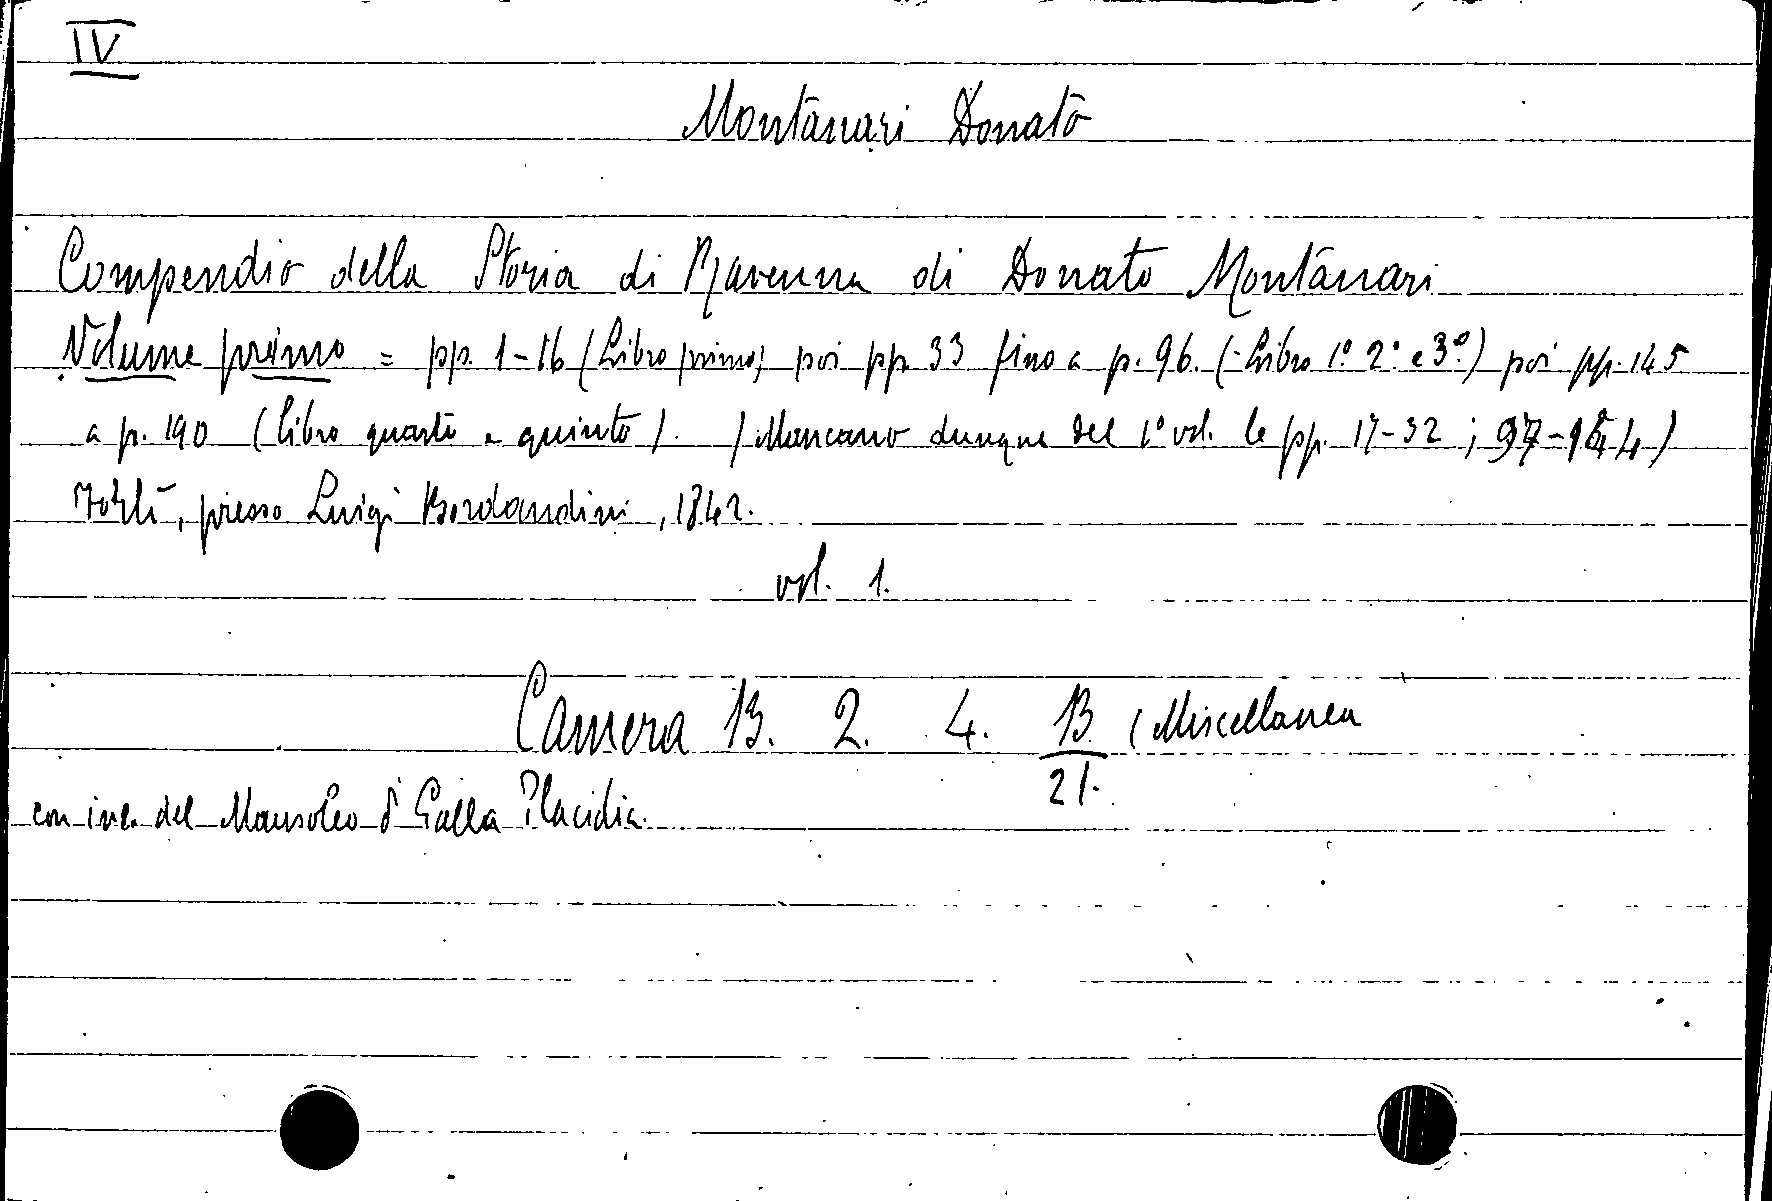 IV
Montanari Donato
Compendio della Storia di Ravenna di Donato Montanari
Volume primo = pp. 1-16 (Libro primo; poi pp. 33 fino a p. 96. (Libro 1º 2º e 3º) poi pp. 145
a p. 190 (libro quarto e quinto). (Mancano dunque del 1º vol. le pp. 17-32; 97-144)
Forlì, presso Luigi Bordandini, 1842.
vol. 1.
Camera B. 2. 4. B (Miscellanea
21.
con inc. del Mausoleo d Galla Placidia.